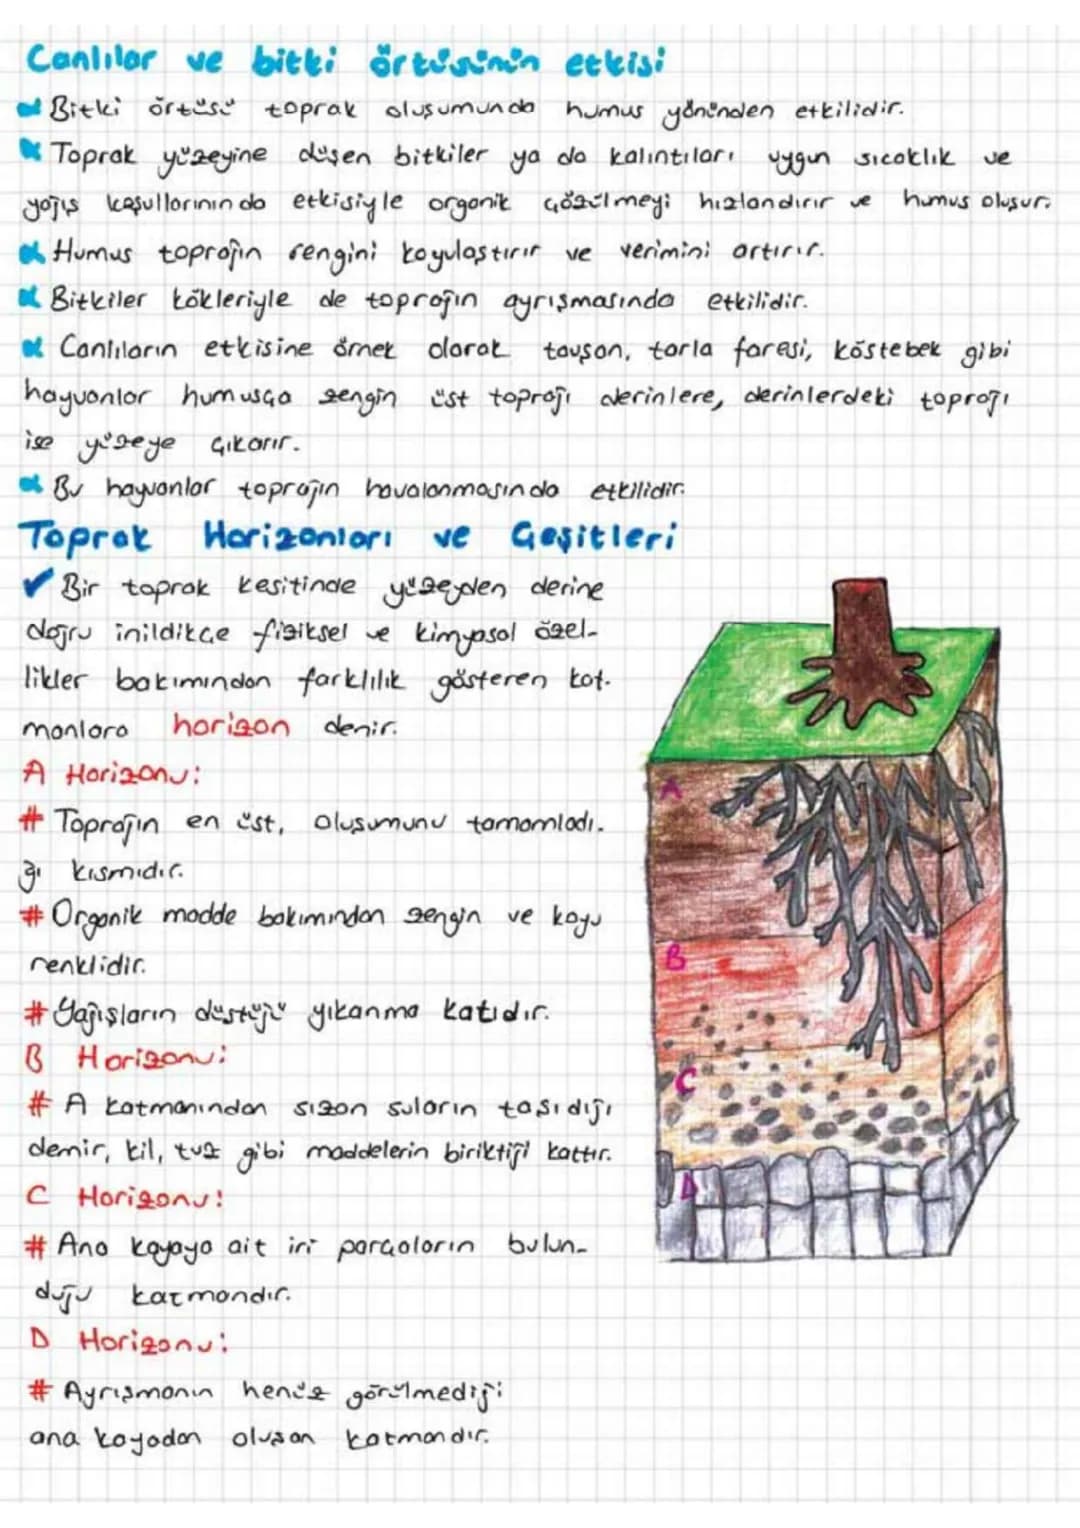 Canlılar ve bitki örtüsünün etkisi
Bitki örtüsü toprak oluşumunda humus yönünden etkilidir.
Toprak yüzeyine düşen bitkiler ya da kalıntıları uygun sıcaklık ve
yağış koşullarınında etkisiyle organik çözülmeyi hızlandırır ve humus oluşur.
Humus toprağın rengini koyulaştırır ve verimini artırır.
Bitkiler kökleriyle de toprağın ayrışmasında etkilidir.
Canlıların etkisine örnek olarak tavşan, tarla faresi, köstebek gibi
hayvanlar humusça zengin üst toprağı derinlere, derinlerdeki toprağı
ise yüzeye çıkarır.
Bu hayvanlar toprağın havalanmasında etkilidir.
Toprak Horizonları ve Çeşitleri
✓ Bir toprak kesitinde yüzeyden derine
doğru inildikçe fiziksel ve kimyasal özel-
likler bakımından farklılık gösteren kat-
manlara horizon denir.
A Horizonu:
# Toprağın en üst, oluşumunu tamamladı-
ğı kısmıdır.
# Organik madde bakımından zengin ve koyu
renklidir.
# Yağışların düştüğü yıkanma katıdır.
B Horizonu:
# A katmanından sızan suların taşıdığı
demir, kil, tuz gibi maddelerin biriktiği kattır.
C Horizonu:
# Ana kayaya ait iri parçaların bulun-
duğu katmandır.
D Horizonu:
# Ayrışmanın henüz görülmediği
ana kayadan oluşan katmandır.
A
B
C
D